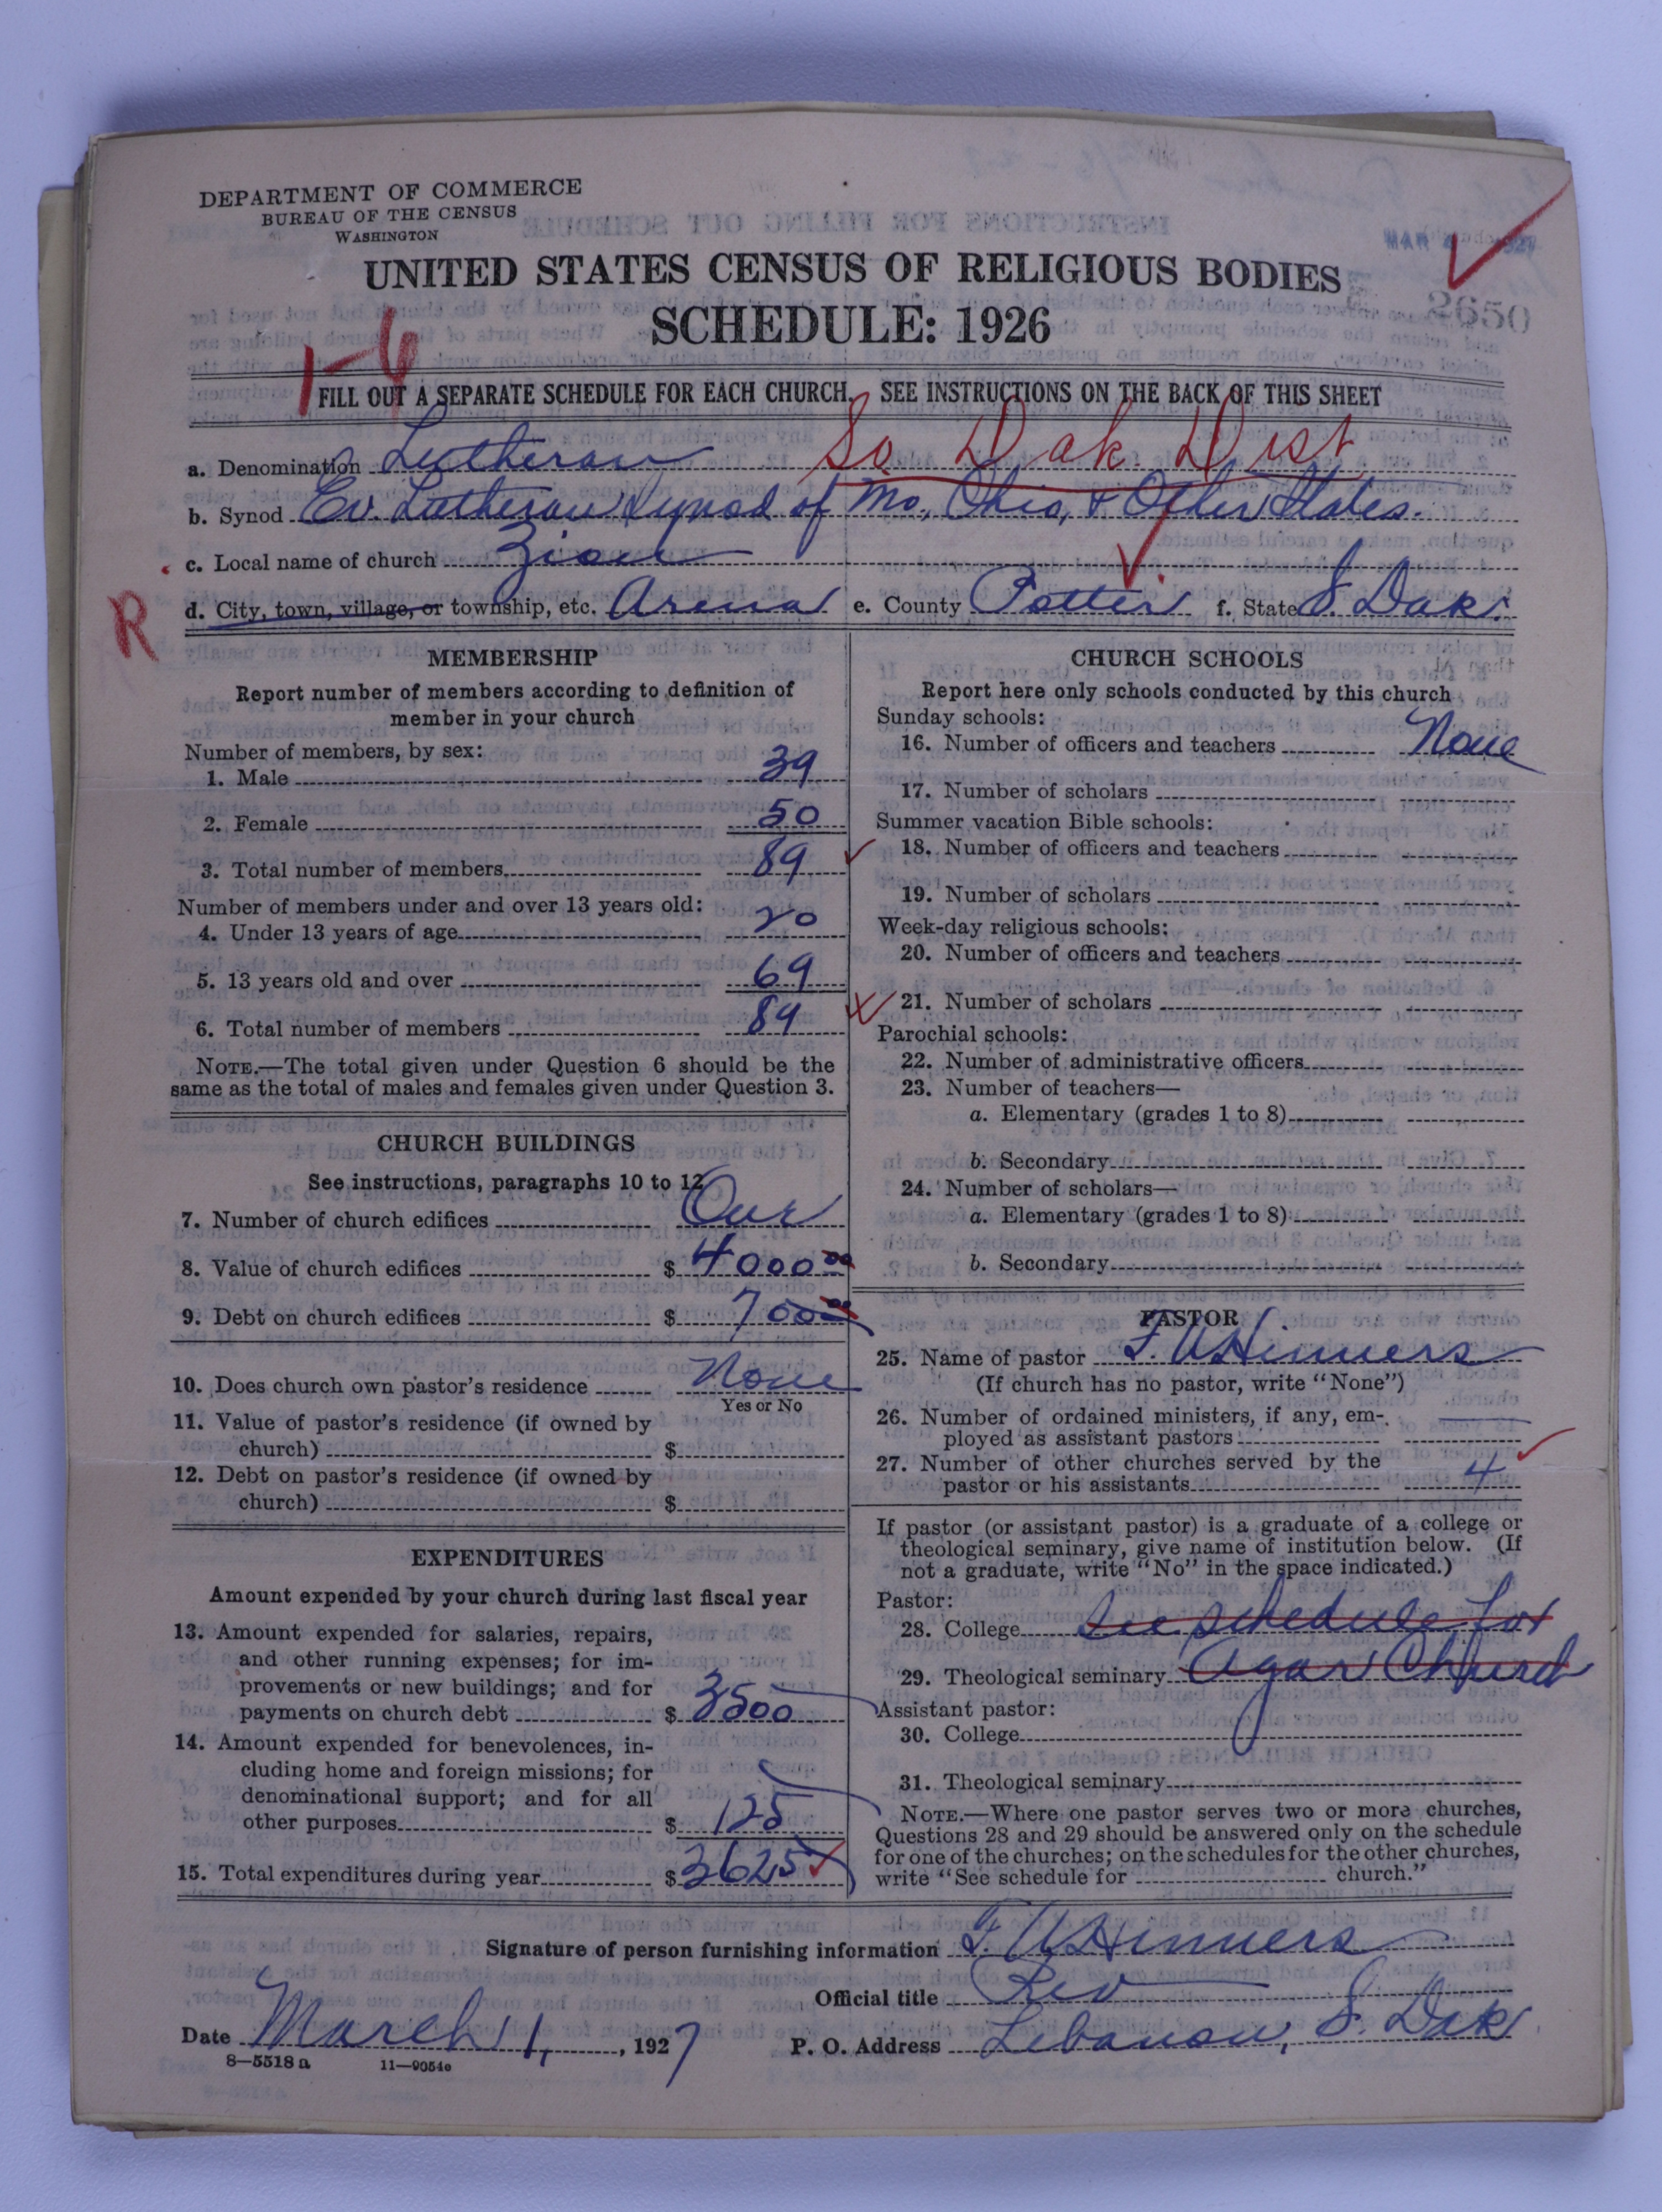 DEPARTMENT OF COMMERCE
BUREAU OF THE CENSUS
WASHINGTON
UNITED STATES CENSUS OF RELIGIOUS BODIES
SCHEDULE: 1926
2650
1-6
FILL OUT A SEPARATE SCHEDULE FOR EACH CHURCH. SEE INSTRUCTIONS ON THE BACK OF THIS SHEET
So Dak. Dist
a. Denomination Lutheran
b. Synod Ev. Lutheran Synod of Mo, Ohio, & Other States.
c. Local name of church Zion
R
d. City, town, village, or township, etc. Arena e. County Potter f. State S. Dak.
MEMBERSHIP
Report number of members according to definition of
member in your church
Number of members, by sex:
1. Male 39
2. Female 50
3. Total number of members 89
Number of members under and over 13 years old:
4. Under 13 years of age 20
5. 13 years old and over 69
6. Total number of members 89
NOTE.—The total given under Question 6 should be the
same as the total of males and females given under Question 3.
CHURCH BUILDINGS
See instructions, paragraphs 10 to 12
7. Number of church edifices One
8. Value of church edifices $ 4000 00
9. Debt on church edifices $ 700 00
10. Does church own pastor's residence None
Yes or No
11. Value of pastor's residence (if owned by
church) $
12. Debt on pastor's residence (if owned by
church) $
EXPENDITURES
Amount expended by your church during last fiscal year
13. Amount expended for salaries, repairs,
and other running expenses; for im-
provements or new buildings; and for
payments on church debt $ 3500
14. Amount expended for benevolences, in-
cluding home and foreign missions; for
denominational support; and for all
other purposes $ 125
15. Total expenditures during year $ 3625
CHURCH SCHOOLS
Report here only schools conducted by this church
Sunday schools:
16. Number of officers and teachers None
17. Number of scholars
Summer vacation Bible schools:
18. Number of officers and teachers
19. Number of scholars
Week-day religious schools:
20. Number of officers and teachers
21. Number of scholars
Parochial schools:
22. Number of administrative officers
23. Number of teachers—
a. Elementary (grades 1 to 8)
b. Secondary
24. Number of scholars—
a. Elementary (grades 1 to 8)
b. Secondary
PASTOR
25. Name of pastor F. W. Hinners
(If church has no pastor, write "None")
26. Number of ordained ministers, if any, em-
ployed as assistant pastors
27. Number of other churches served by the
pastor or his assistants 4
If pastor (or assistant pastor) is a graduate of a college or
theological seminary, give name of institution below. (If
not a graduate, write "No" in the space indicated.)
Pastor:
28. College See schedule for
29. Theological seminary Agar Church
Assistant pastor:
30. College
31. Theological seminary
NOTE.—Where one pastor serves two or more churches,
Questions 28 and 29 should be answered only on the schedule
for one of the churches; on the schedules for the other churches,
write "See schedule for church."
Signature of person furnishing information F. W. Hinners
Official title Rev
Date March 11, 1927 P. O. Address Lebanon, S. Dak
8—5518 a 11—9054c